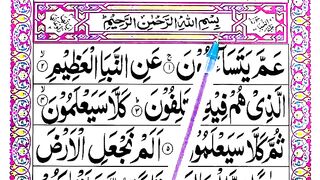 بِسْمِ اللّٰهِ الرَّحْمٰنِ الرَّحِيْمِ
عَمَّ يَتَسَآءَلُوْنَ ۝١ عَنِ النَّبَاِ الْعَظِيْمِ ۝٢
الَّذِيْ هُمْ فِيْهِ تَلِفُوْنَ ۝٣ كَلَّا سَيَعْلَمُوْنَ
ثُمَّ كَلَّا سَيَعْلَمُوْ ۝٥ اَلَمْ نَجْعَلِ الْاَرْضَ